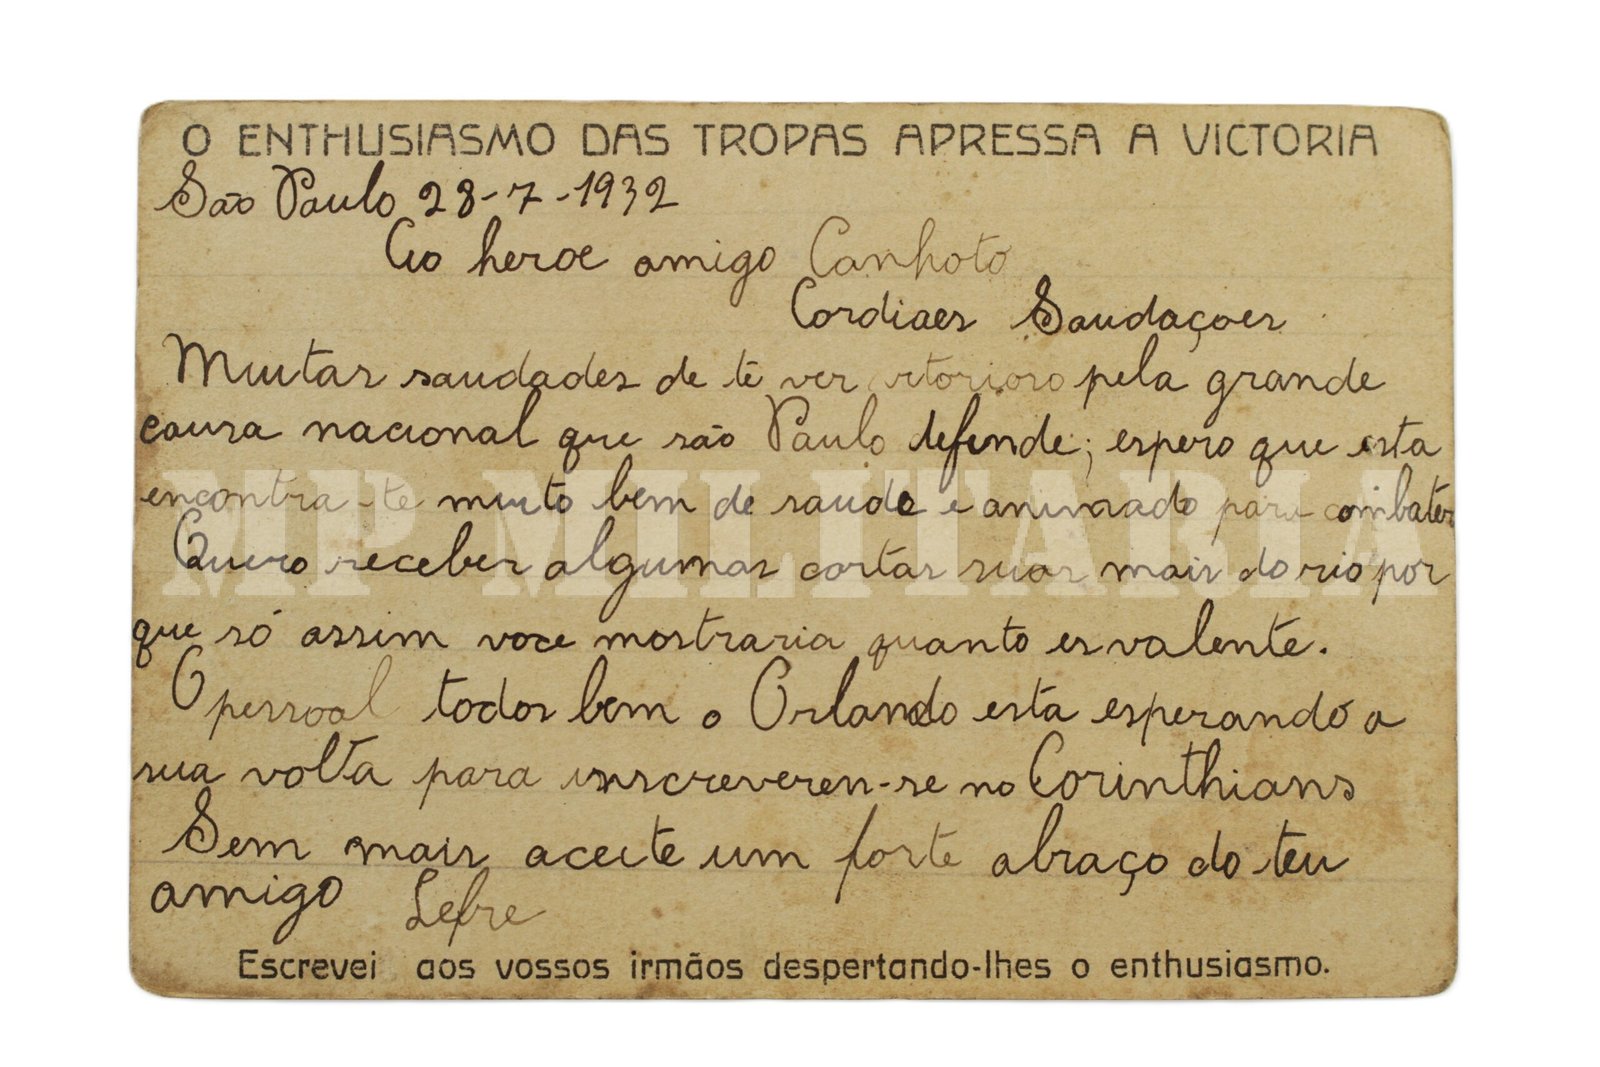 O ENTHUSIASMO DAS TROPAS APRESSA A VICTORIA
São Paulo 28-7-1932
Ao heroe amigo Canhoto
Cordiaes Saudaçoes
Muitas saudades de te ver vitorioso pela grande
causa nacional que são Paulo defende; espero que esta
encontra-te muito bem de saude e animado para combater
Quero receber algumas cartas suas mais do rio por
que só assim voce mostraria quanto es valente.
O pessoal todos bem o Orlando esta esperando a
sua volta para inscreveren-se no Corinthians
Sem mais aceite um forte abraço do teu
amigo Lebre
Escrevei aos vossos irmãos despertando-lhes o enthusiasmo.
MP MILITARIA